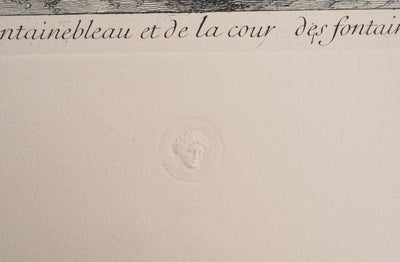 ntainebleau et de la cour des fontain